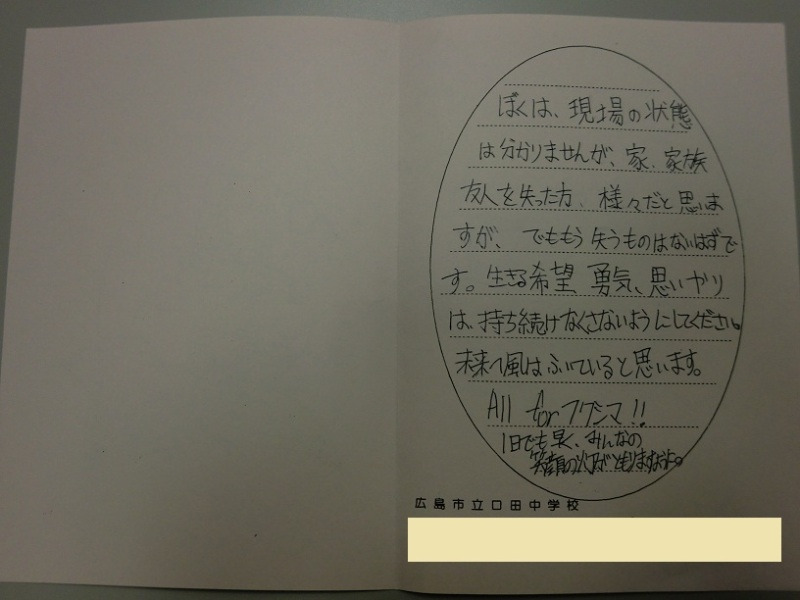 ぼくは、現場の状態
は分かりませんが、家、家族
友人を失った方、様々だと思いま
すが、でももう失うものはないはずで
す。生きる希望 勇気、思いやり
は、持ち続けなくさないようにしてください。
未来へ風はふいていると思います。
All for フクシマ!!
1日でも早く、みんなの
笑顔の灯がともりますように。
広島市立口田中学校